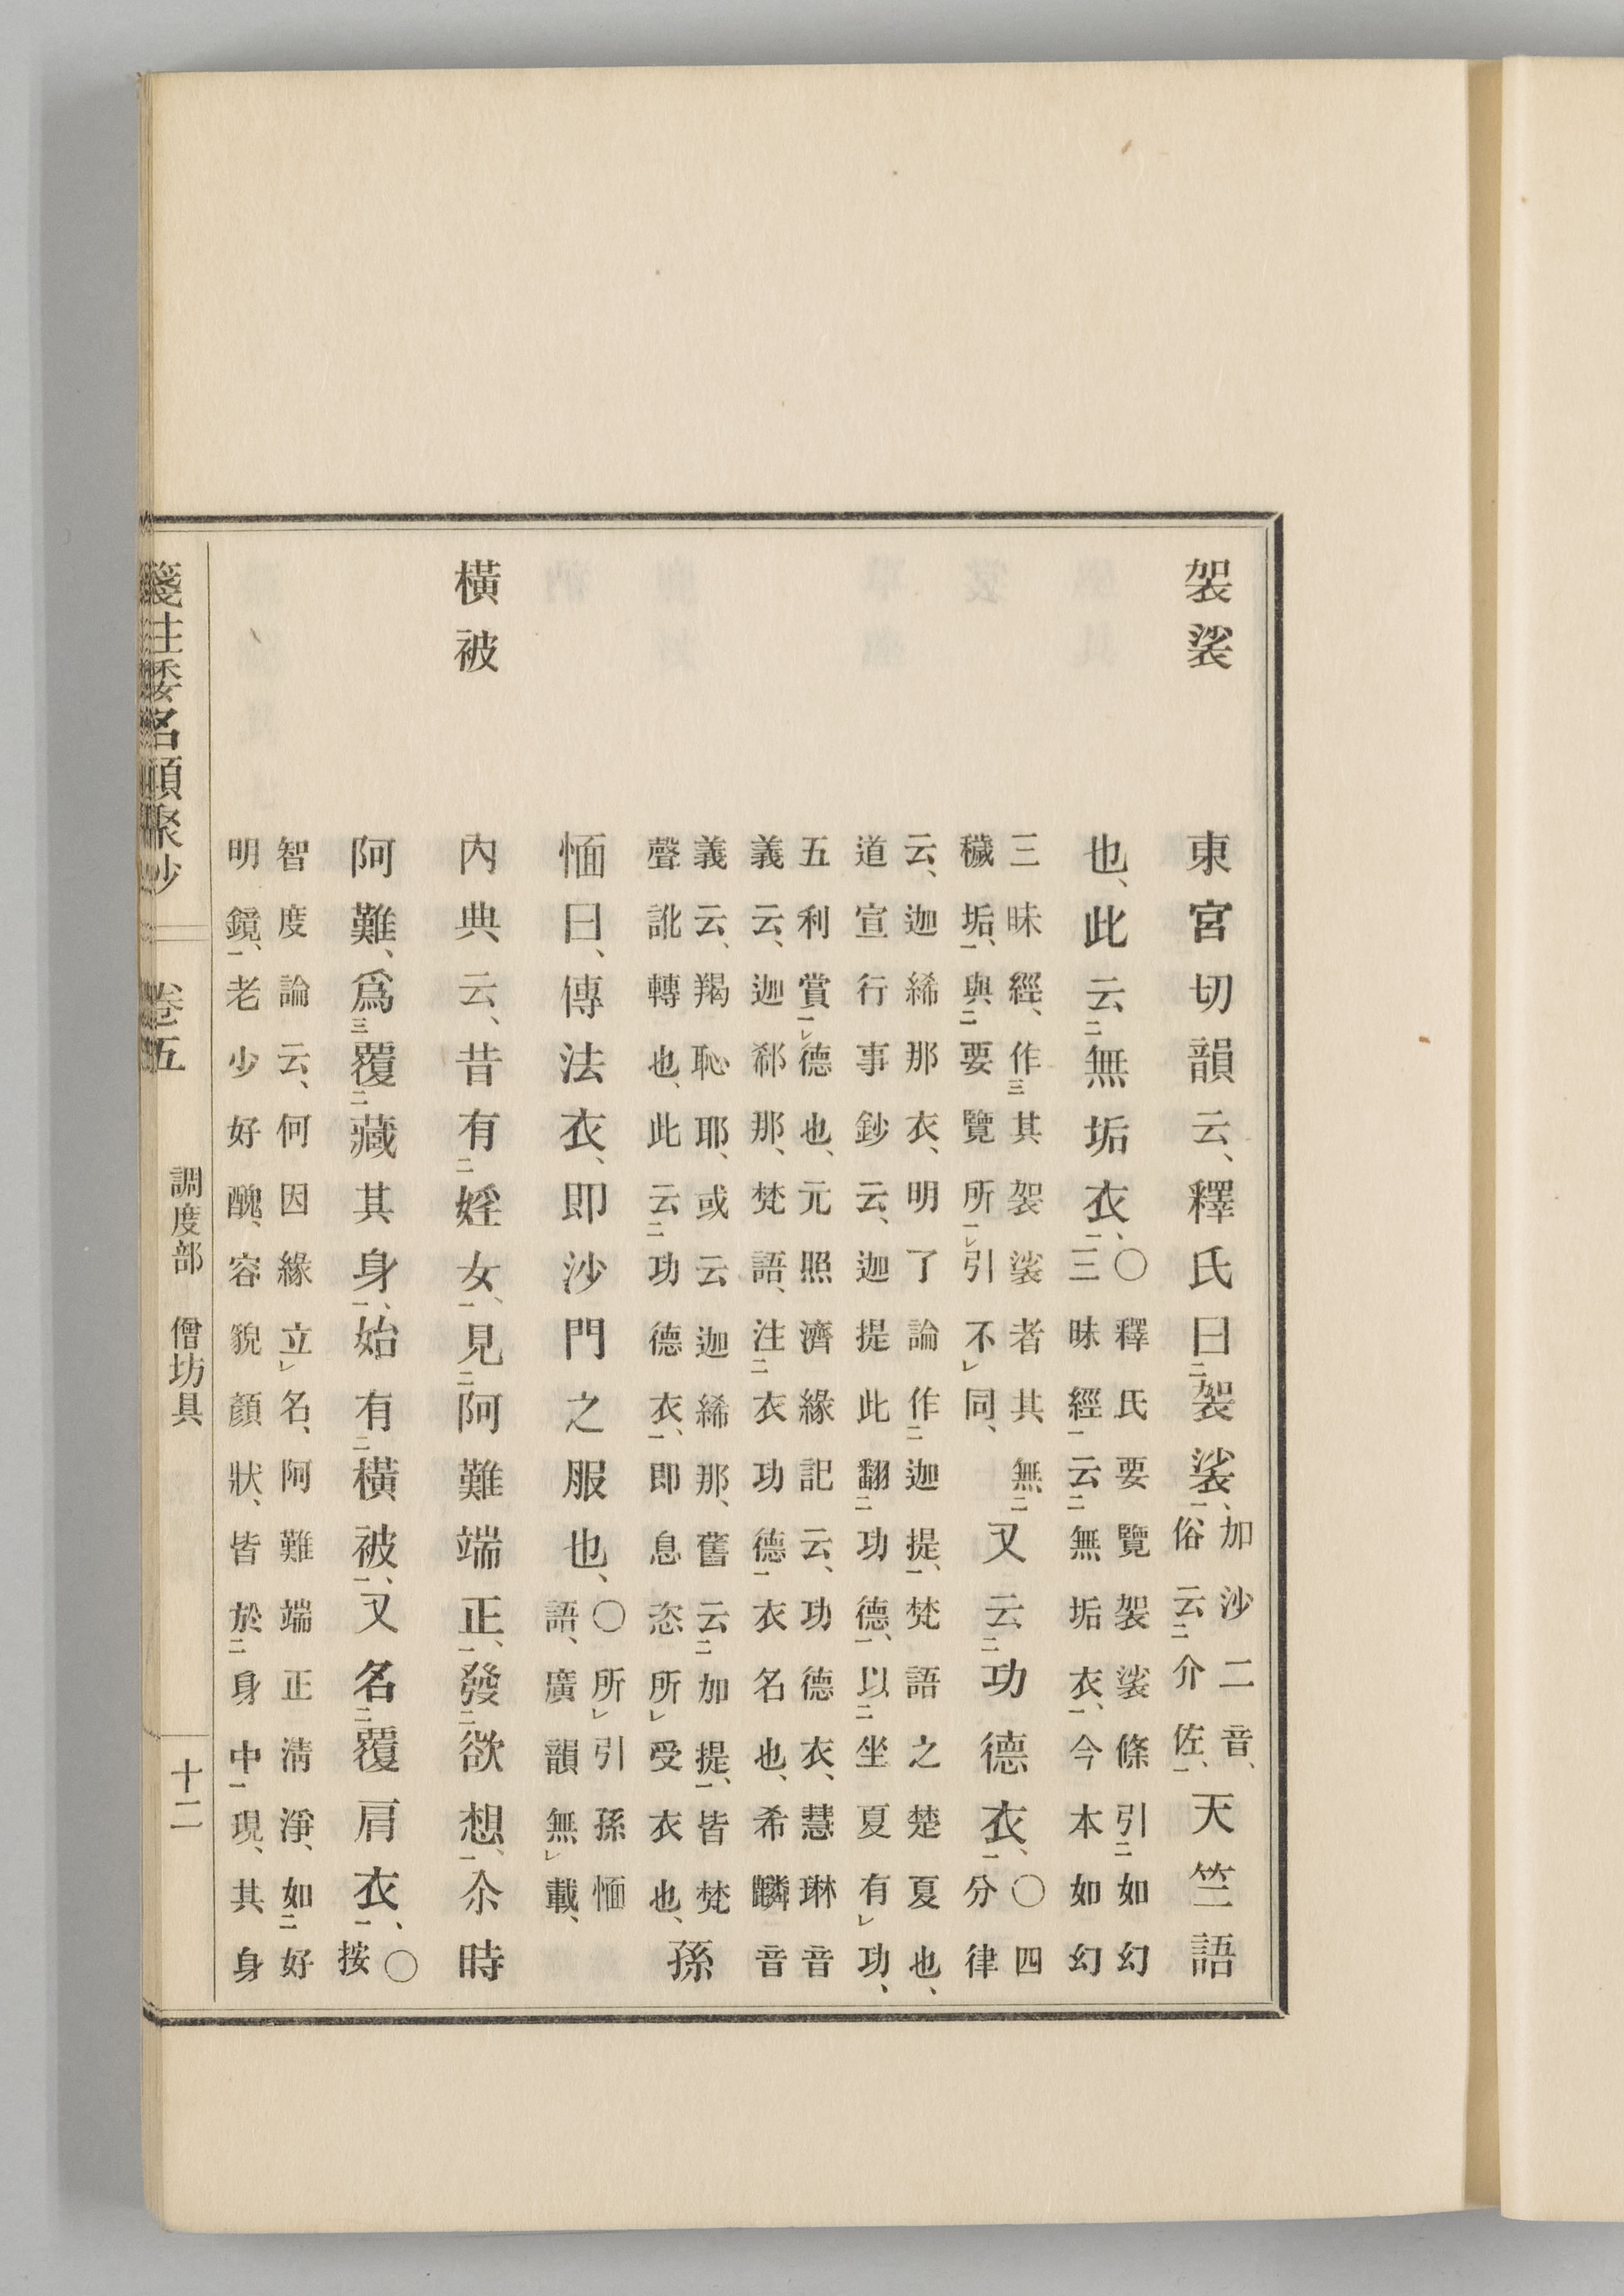 袈裟
東宮切韻云、釋氏曰㆓袈裟㆒、
加沙二音、
俗云㆓介佐㆒、
天竺語
也、此云㆓無垢衣㆒、
〇釋氏要覽袈裟條引㆓如幻
三昧經㆒云㆓無垢衣㆒、今本如幻
三昧經、作㆔其袈裟者其無㆓
穢垢㆒、與㆓要覽所㆒㆑引不㆑同、
又云㆓功德衣㆒、
〇四
分律
云、迦絺那衣、明了論作㆓迦提㆒、梵語之楚夏也、
道宣行事鈔云、迦提此翻㆓功德㆒、以㆓坐夏有㆑功、
五利賞㆒㆑德也、元照濟緣記云、功德衣、慧琳音
義云、迦郗那、梵語、注㆓衣功德㆒衣名也、希麟音
義云、羯恥耶、或云迦絺那、舊云㆓加提㆒、皆梵
聲訛轉也、此云㆓功德衣㆒、即息恣所㆑受衣也、
孫
愐曰、傳法衣、即沙門之服也、
〇所㆑引孫愐
語、廣韻無㆑載、
橫被
內典云、昔有㆓婬女㆒、見㆓阿難端正㆒、發㆓欲想㆒、尒時
阿難、爲㆔覆㆓藏其身㆒、始有㆓橫被㆒、又名㆓覆肩衣㆒、
〇
按
智度論云、何因緣立㆑名、阿難端正清淨、如㆓好
明鏡㆒、老少好醜、容貌顏狀、皆於㆓身中㆒現、其身
箋注倭名類聚抄 卷五 調度部 僧坊具 十二